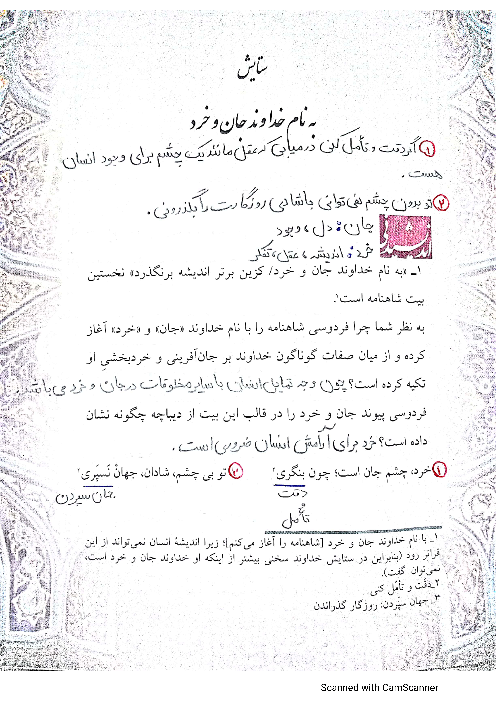 ستایش
به نام خداوند جان و خرد
۱ اگر دقت و تأمل کنی درمیابی که عقل مانند یک چشم برای وجود انسان
هست .
۲ تو بدون چشم نمی توانی با شادابی روزگارت را بگذرونی .
جان : دل ، وجود
خرد : اندیشه ، عقل ، تفکر
۱ـ «به نام خداوند جان و خرد/ کزین برتر اندیشه برنگذرد» نخستین
بیت شاهنامه است۱.
به نظر شما چرا فردوسی شاهنامه را با نام خداوند «جان» و «خرد» آغاز
کرده و از میان صفات گوناگون خداوند بر جان‌آفرینی و خردبخشی او
تکیه کرده است؟ چون وجه تمایل انسان با سایر مخلوقات در جان و خرد می باشد.
فردوسی پیوند جان و خرد را در قالب این بیت از دیباچه چگونه نشان
داده است؟ خرد برای آرامش انسان ضروری است .
۱ خرد، چشم جان است؛ چون بنگری۲ ۲ تو بی چشم، شادان، جهانْ نَسپَری۳
دقت جهان سپردن
و
تأمل
۱ـ با نام خداوند جان و خرد [شاهنامه را آغاز می‌کنم]؛ زیرا اندیشهٔ انسان نمی‌تواند از این
فراتر رود (بنابراین در ستایش خداوند سخنی بیشتر از اینکه او خداوند جان و خرد است،
نمی‌توان گفت).
۲ـ دقّت و تأمّل کنی
۳ـ جهان سپَردن: روزگار گذراندن
Scanned with CamScanner